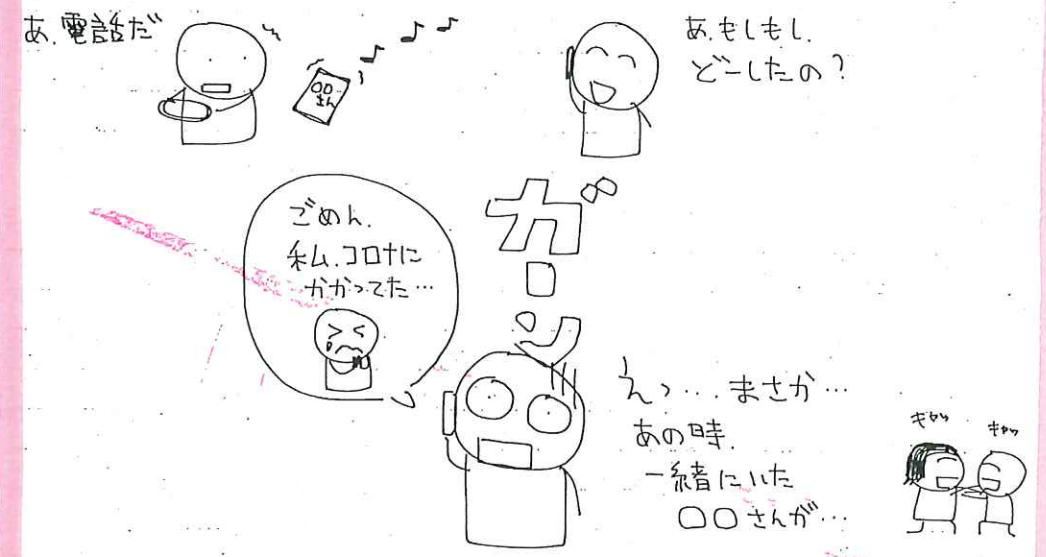 あ、電話だ
○○
さん
あ、もしもし、
どーしたの?
ごめん、
私、コロナに
かかってた…
ガーン
えっ…まさか…
あの時、
一緒にいた
○○さんが…
キャッ
キャッ